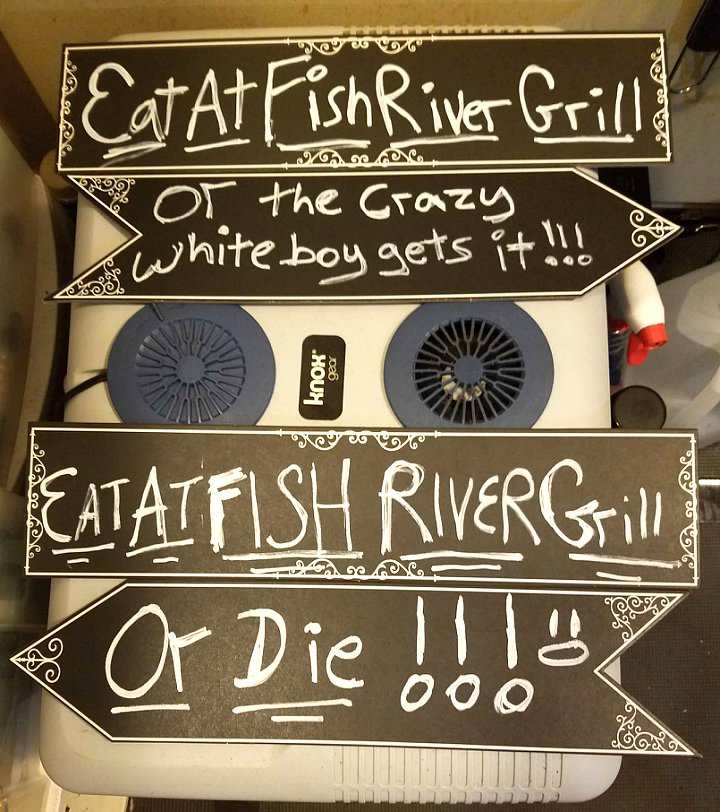 Eat At Fish River Grill
or the crazy
white boy gets it!!!
knox®
gear
EAT AT FISH RIVER Grill
Or Die !!!